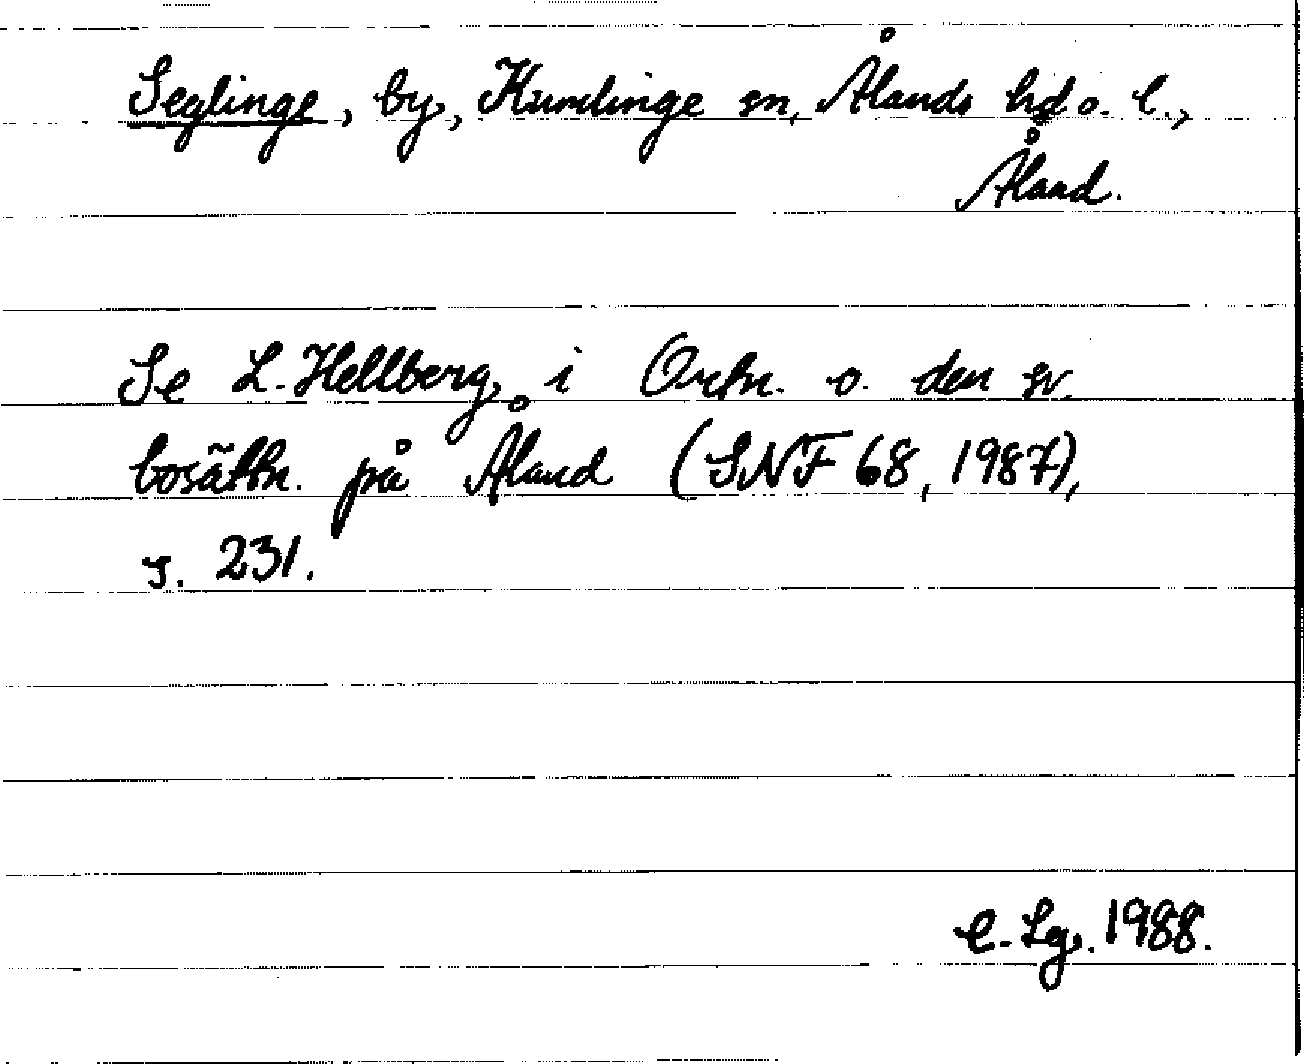 Seglinge, by, Kumlinge sn, Ålands hd o. l.,
Åland.
Se L. Hellberg i Ortn. o. den sv.
bosättn. på Åland (SNF 68, 1987),
s. 231.
C. Lg. 1988.